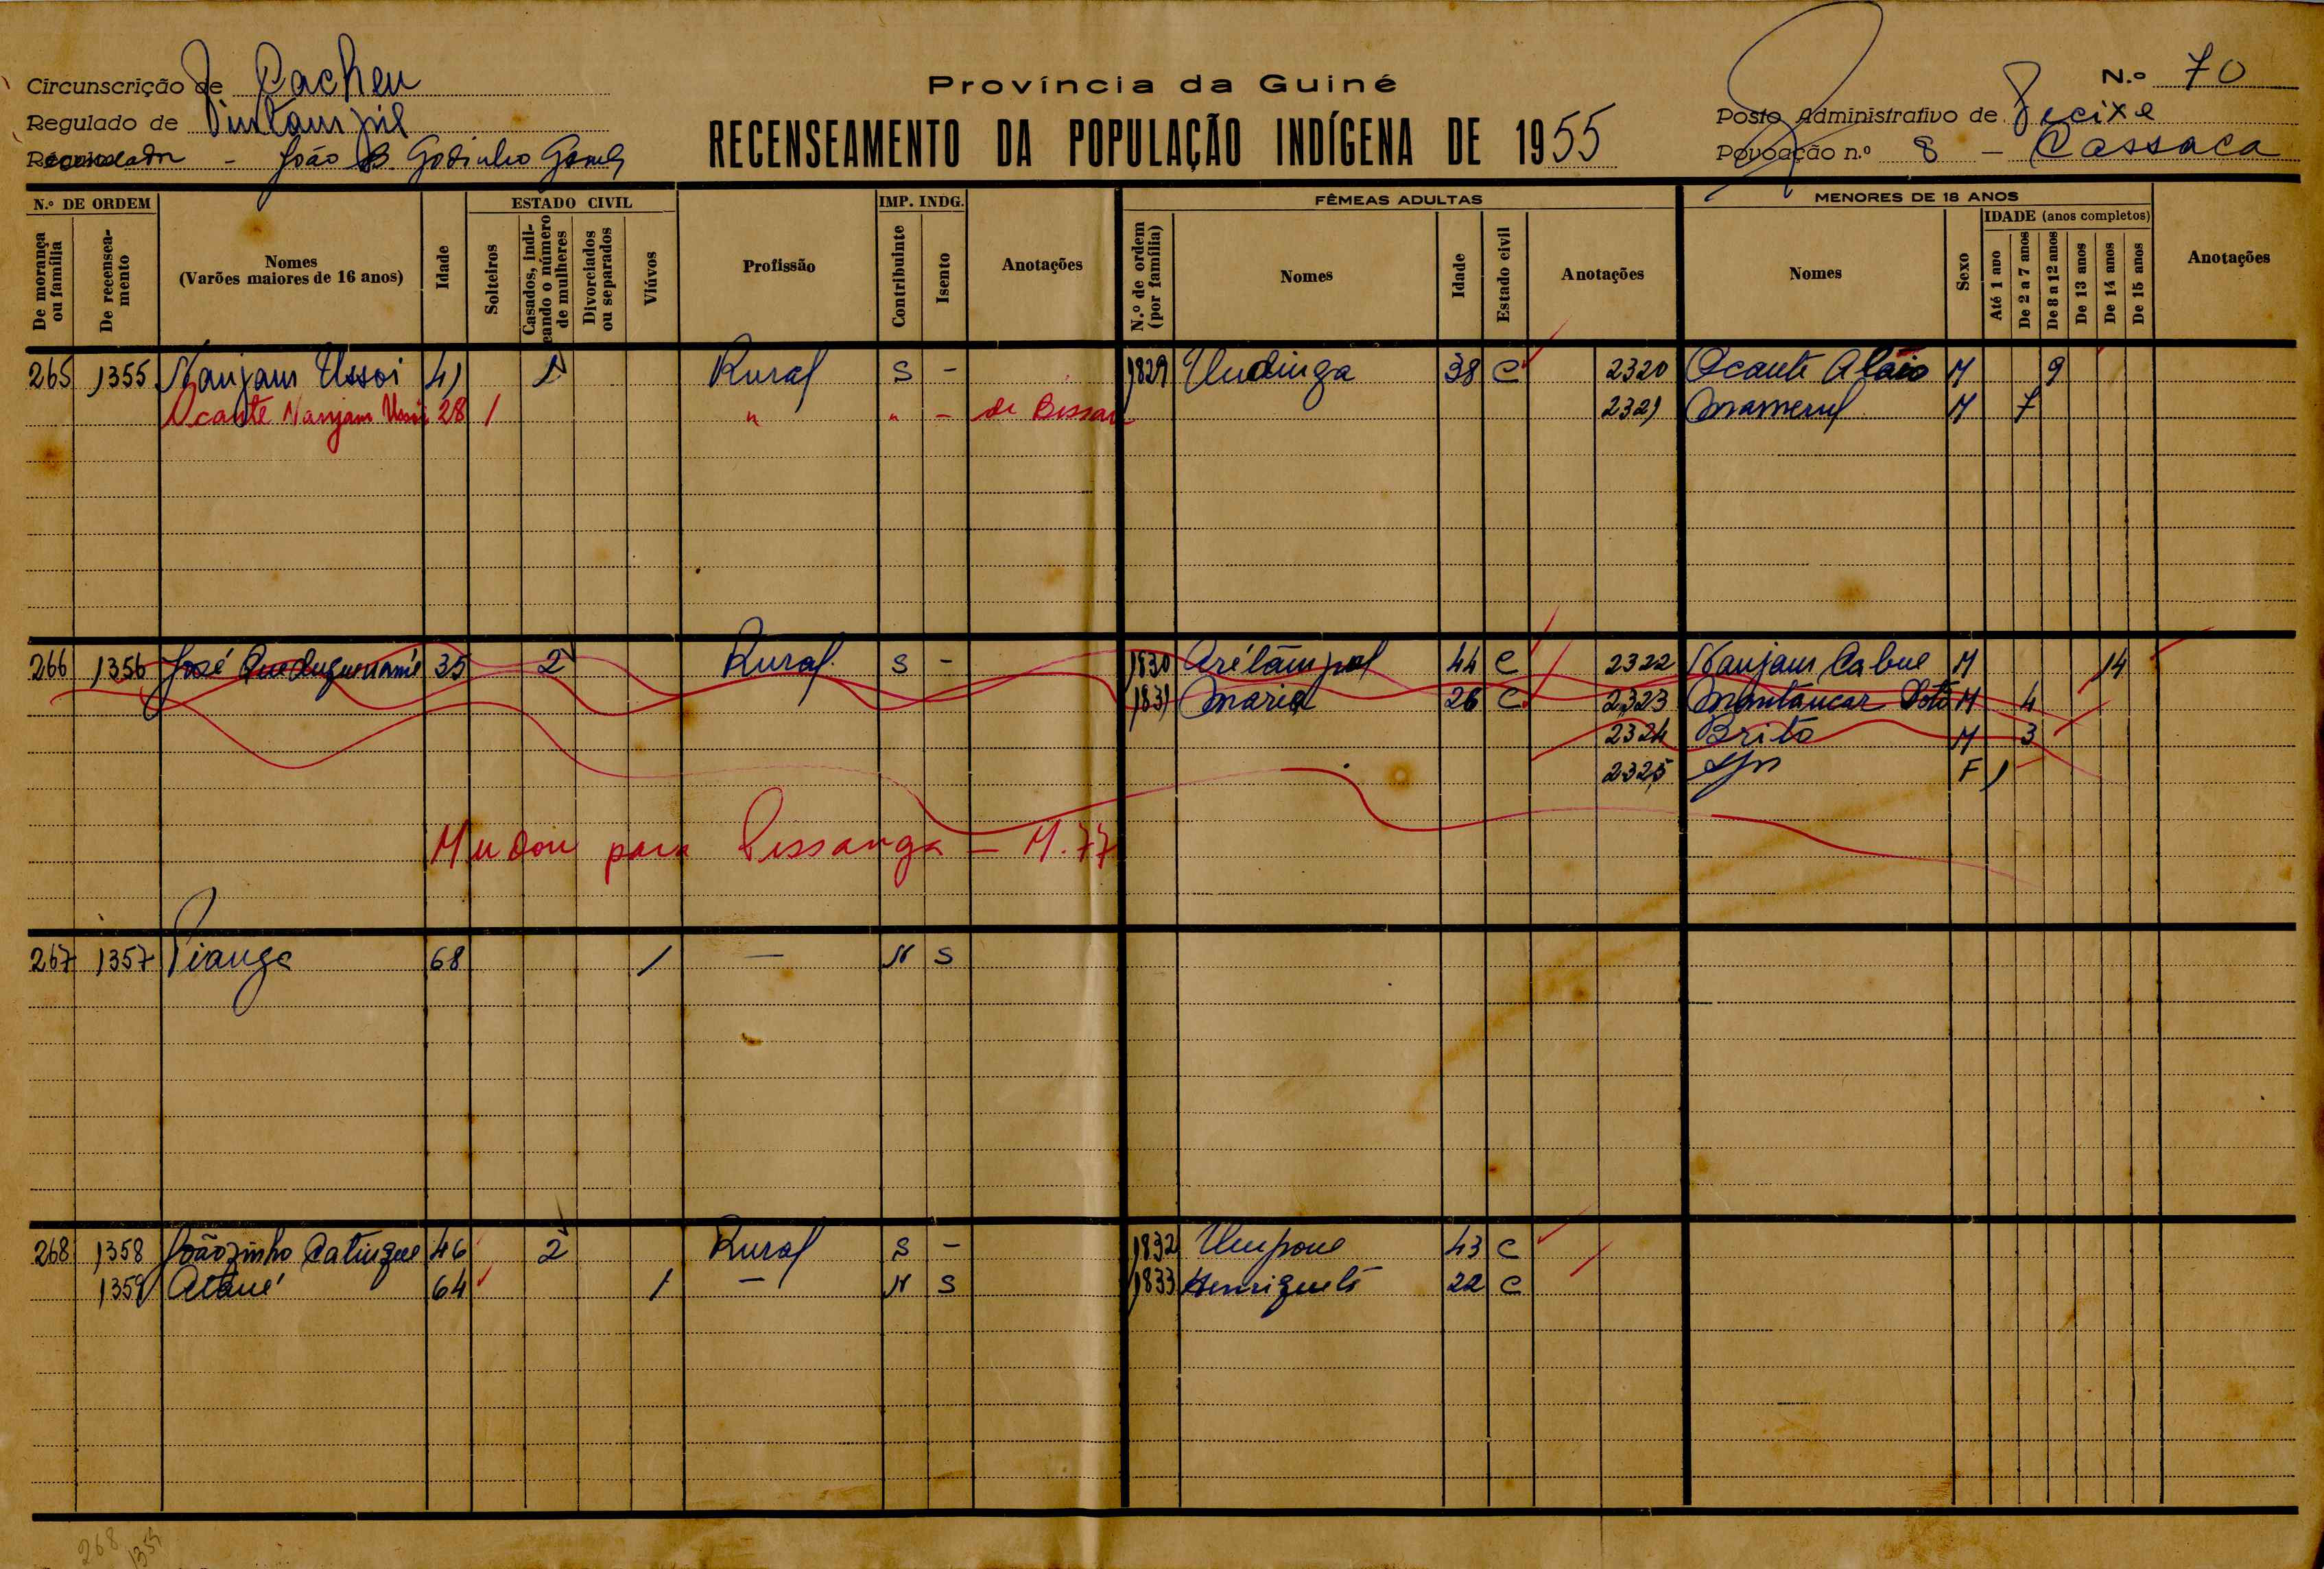 Circunscrição de Cacheu
Província da Guiné
N.º 70
Regulado de
Posto Administrativo de Pecixe
RECENSEAMENTO DA POPULAÇÃO INDÍGENA DE 1955
João B Godinho Gomes
Povoação n.º 8 - Cassaca
N.º DE ORDEM
ESTADO CIVIL
IMP. INDG.
FÊMEAS ADULTAS
MENORES DE 18 ANOS
IDADE (anos completos)
De morança ou família
De recenseamento
Nomes (Varões maiores de 16 anos)
Idade
Solteiros
Casados, indicando o número de mulheres
Divorciados ou separados
Viúvos
Profissão
Contribuinte
Isento
Anotações
N.º de ordem (por família)
Nomes
Idade
Estado civil
Anotações
Nomes
Sexo
Até 1 ano
De 2 a 7 anos
De 8 a 12 anos
De 13 anos
De 14 anos
De 15 anos
Anotações
265 1355 Nanjam Ussoi 41 1 Rural S - 1829 Undinga 38 C 2320 Ocante M 9
Ocante Nanjam Ussoi 28 / " " - de Bissau 2321 M 7
266 1356 José 35 2 Rural S - 1830 44 C 2322 Nanjam Cabue M 14
1831 Maria 26 C 2323 M 4
2324 Brito M 3
2325 F 1
Mudou para Pissanga - M.77
267 1357 Pianga 68 / — N S
268 1358 Joãozinho Catingue 46 2 Rural S - 1832 Umpone 43 C
1359 64 / — N S 1833 22 C
268 1359